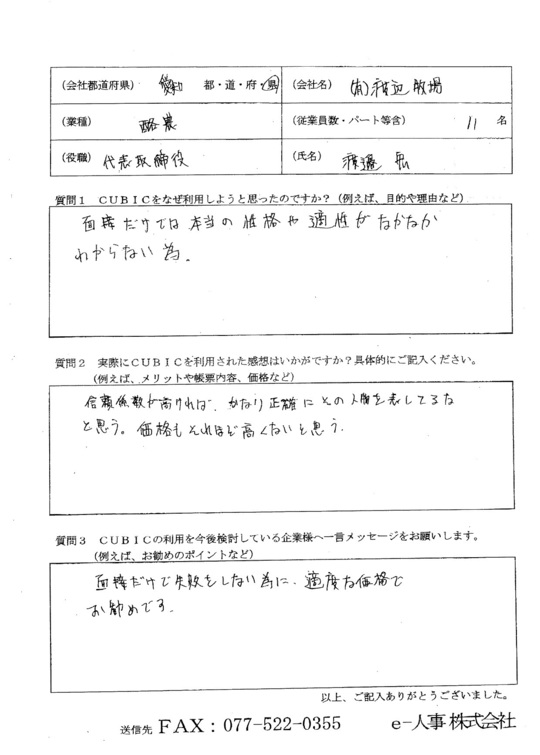 (会社都道府県) 愛知 都・道・府・県
(会社名) (有)渡辺牧場
(業種) 酪農
(従業員数・パート等含) 11 名
(役職) 代表取締役
(氏名) 渡邊
質問1 CUBICをなぜ利用しようと思ったのですか?(例えば、目的や理由など)
面接だけでは本当の性格や適性がなかなか
わからない為。
質問2 実際にCUBICを利用された感想はいかがですか?具体的にご記入ください。
(例えば、メリットや帳票内容、価格など)
信頼係数が高ければ、かなり正確にその人物を表してるな
と思う。価格もそれほど高くないと思う。
質問3 CUBICの利用を今後検討している企業様へ一言メッセージをお願いします。
(例えば、お勧めのポイントなど)
面接だけで失敗をしない為に、適度な価格で
お勧めです。
以上、ご記入ありがとうございました。
送信先 FAX:077-522-0355 e-人事株式会社